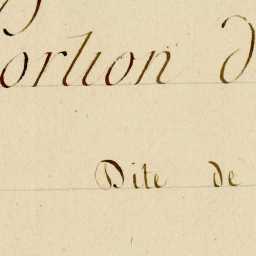 ortion d
Dite de